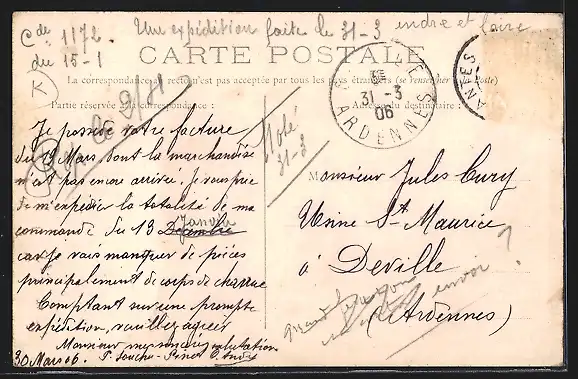 Cde 1172. Une expédition faite le 31-3 indre et loire
du 15-1
CARTE POSTALE
K
La correspondance au recto n'est pas acceptée par tous les pays étrangers (se renseigner à la poste)
Partie réservée à la correspondance :
Adresse du destinataire :
Je possède votre facture
du 19 Mars, dont la marchandise
n'est pas encore arrivée, je vous prie
de m'expédier la totalité de ma
commande du 13 Décembre Janvier
car je vais manquer de pièces
principalement de corps de charrue
Comptant sur une prompte
expédition, veuillez agréer
Monsieur mes sincères salutations
30 Mars 06.
Noté
31-3
31-3
06
ARDENNES
NNES
Monsieur Jules Cury
Usine St Maurice
à Deville
(Ardennes)
quand envoi ?